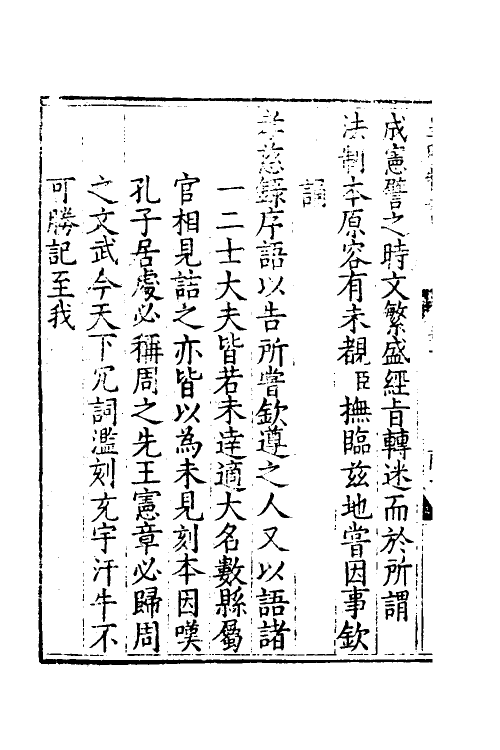 成憲譬之時文繁盛經旨轉迷而於所謂
法制本原容有未覩臣撫臨茲地嘗因事欽
誦
孝慈錄序語以告所嘗欽遵之人又以語諸
一二士大夫皆若未逹適大名數縣屬
官相見詰之亦皆以為未見刻本因嘆
孔子居處必稱周之先王憲章必歸周
之文武今天下冗詞濫刻充宇汗牛不
可勝記至我